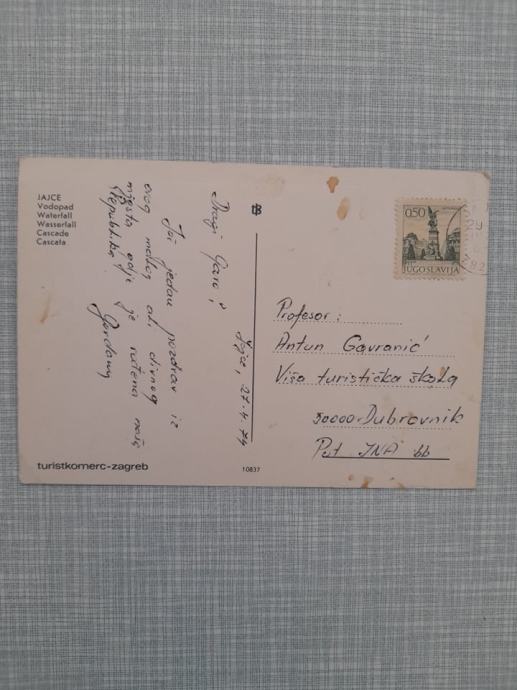 JAJCE
Vodopad
Waterfall
Wasserfall
Cascade
Cascata
Jajce, 27.4.74
Dragi Gavro,
Još jedan pozdrav iz
ovog malog ali divnog
mjesta gdje je rođena naša
Republika.
Gordana
turistkomerc-zagreb
10837
0,50
JUGOSLAVIJA
Profesor:
Antun Gavranić
Viša turistička škola
50000 Dubrovnik
Put JNA bb